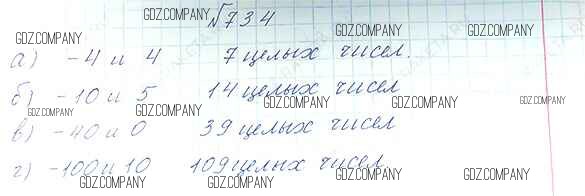 №734
GDZ.COMPANY GDZ.COMPANY GDZ.COMPANY GDZ.COMPANY
а) -4 и 4 7 целых чисел.
GDZ.COMPANY GDZ.COMPANY
б) -10 и 5 14 целых чисел
GDZ.COMPANY GDZ.COMPANY GDZ.COMPANY GDZ.COMPANY
в) -40 и 0 39 целых чисел
GDZ.COMPANY GDZ.COMPANY
г) -100 и 10 109 целых чисел
GDZ.COMPANY GDZ.COMPANY GDZ.COMPANY